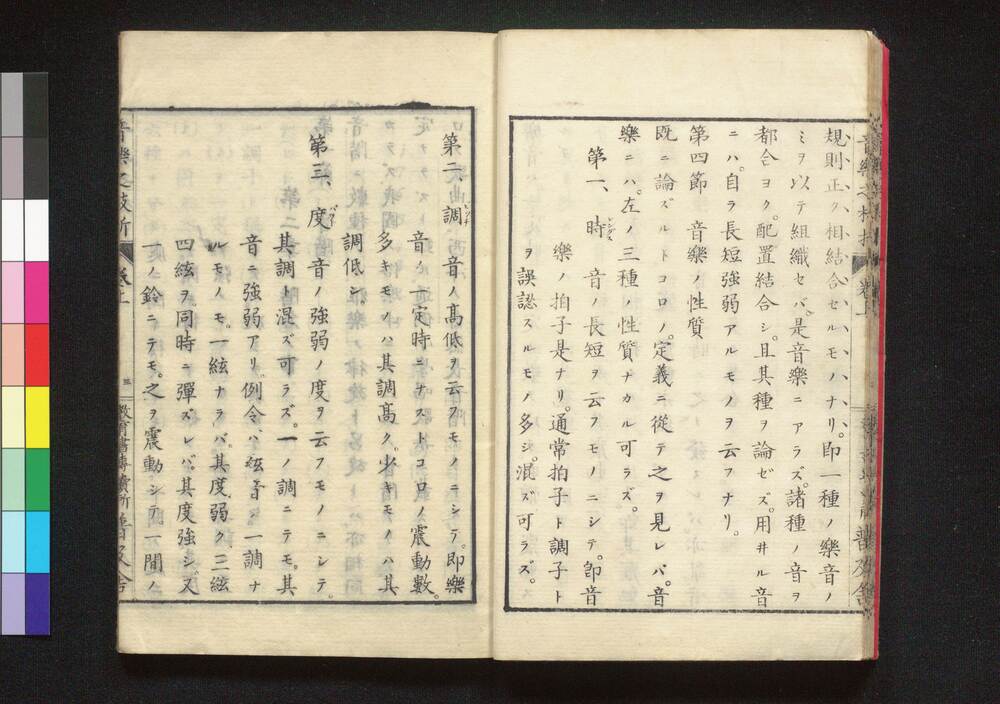 規則正ク、相結合セルモノナリ。即一種ノ樂音ノ
ミヲ以テ組織セバ、是音樂ニアラズ。諸種ノ音ヲ
都合ヨク、配置結合シ、且其種ヲ論ゼズ。用井ル音
ニハ、自ラ長短強弱アルモノヲ云フナリ。
第四節 音樂ノ性質
既ニ論ズルトコロノ、定義ニ從テ之ヲ見レバ、音
樂ニハ、左ノ三種ノ性質ナカル可ラズ。
第一、時 音ノ長短ヲ云フモノニシテ、即音
樂ノ拍子是ナリ。通常拍子ト調子ト
ヲ誤認スルモノ多シ。混ズ可ラズ。
第二、調 音ノ高低ヲ云フモノニシテ、即樂
音ノ一定時ニナストコロノ震動數、
多キモノハ其調高ク、少キモノハ其
調低シ。
第三、度 音ノ強弱ノ度ヲ云フモノニシテ、
其調ト混ズ可ラズ。一ノ調ニテモ、其
音ニ強弱アリ。例令ハ絃音一調ナ
ルモノモ、一絃ナラバ、其度弱ク、三絃
四絃ヲ同時ニ彈ズレバ、其度強シ。又
一ノ鈴ニテモ、之ヲ震動シテ、一間ノ